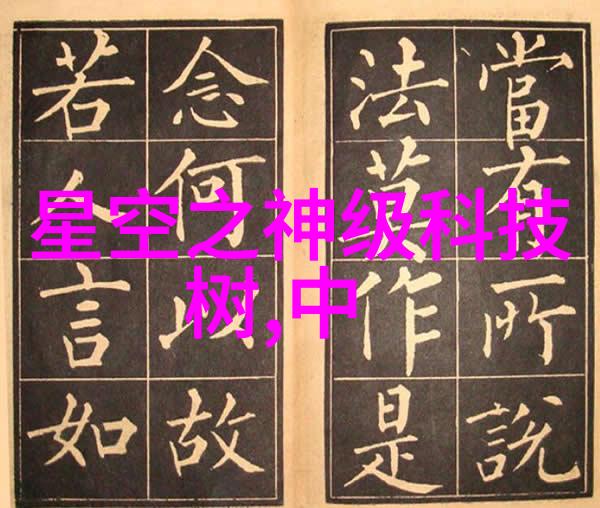 星空之神级科技
树,中
當有所說
法莫作是
念何以故
若人言如